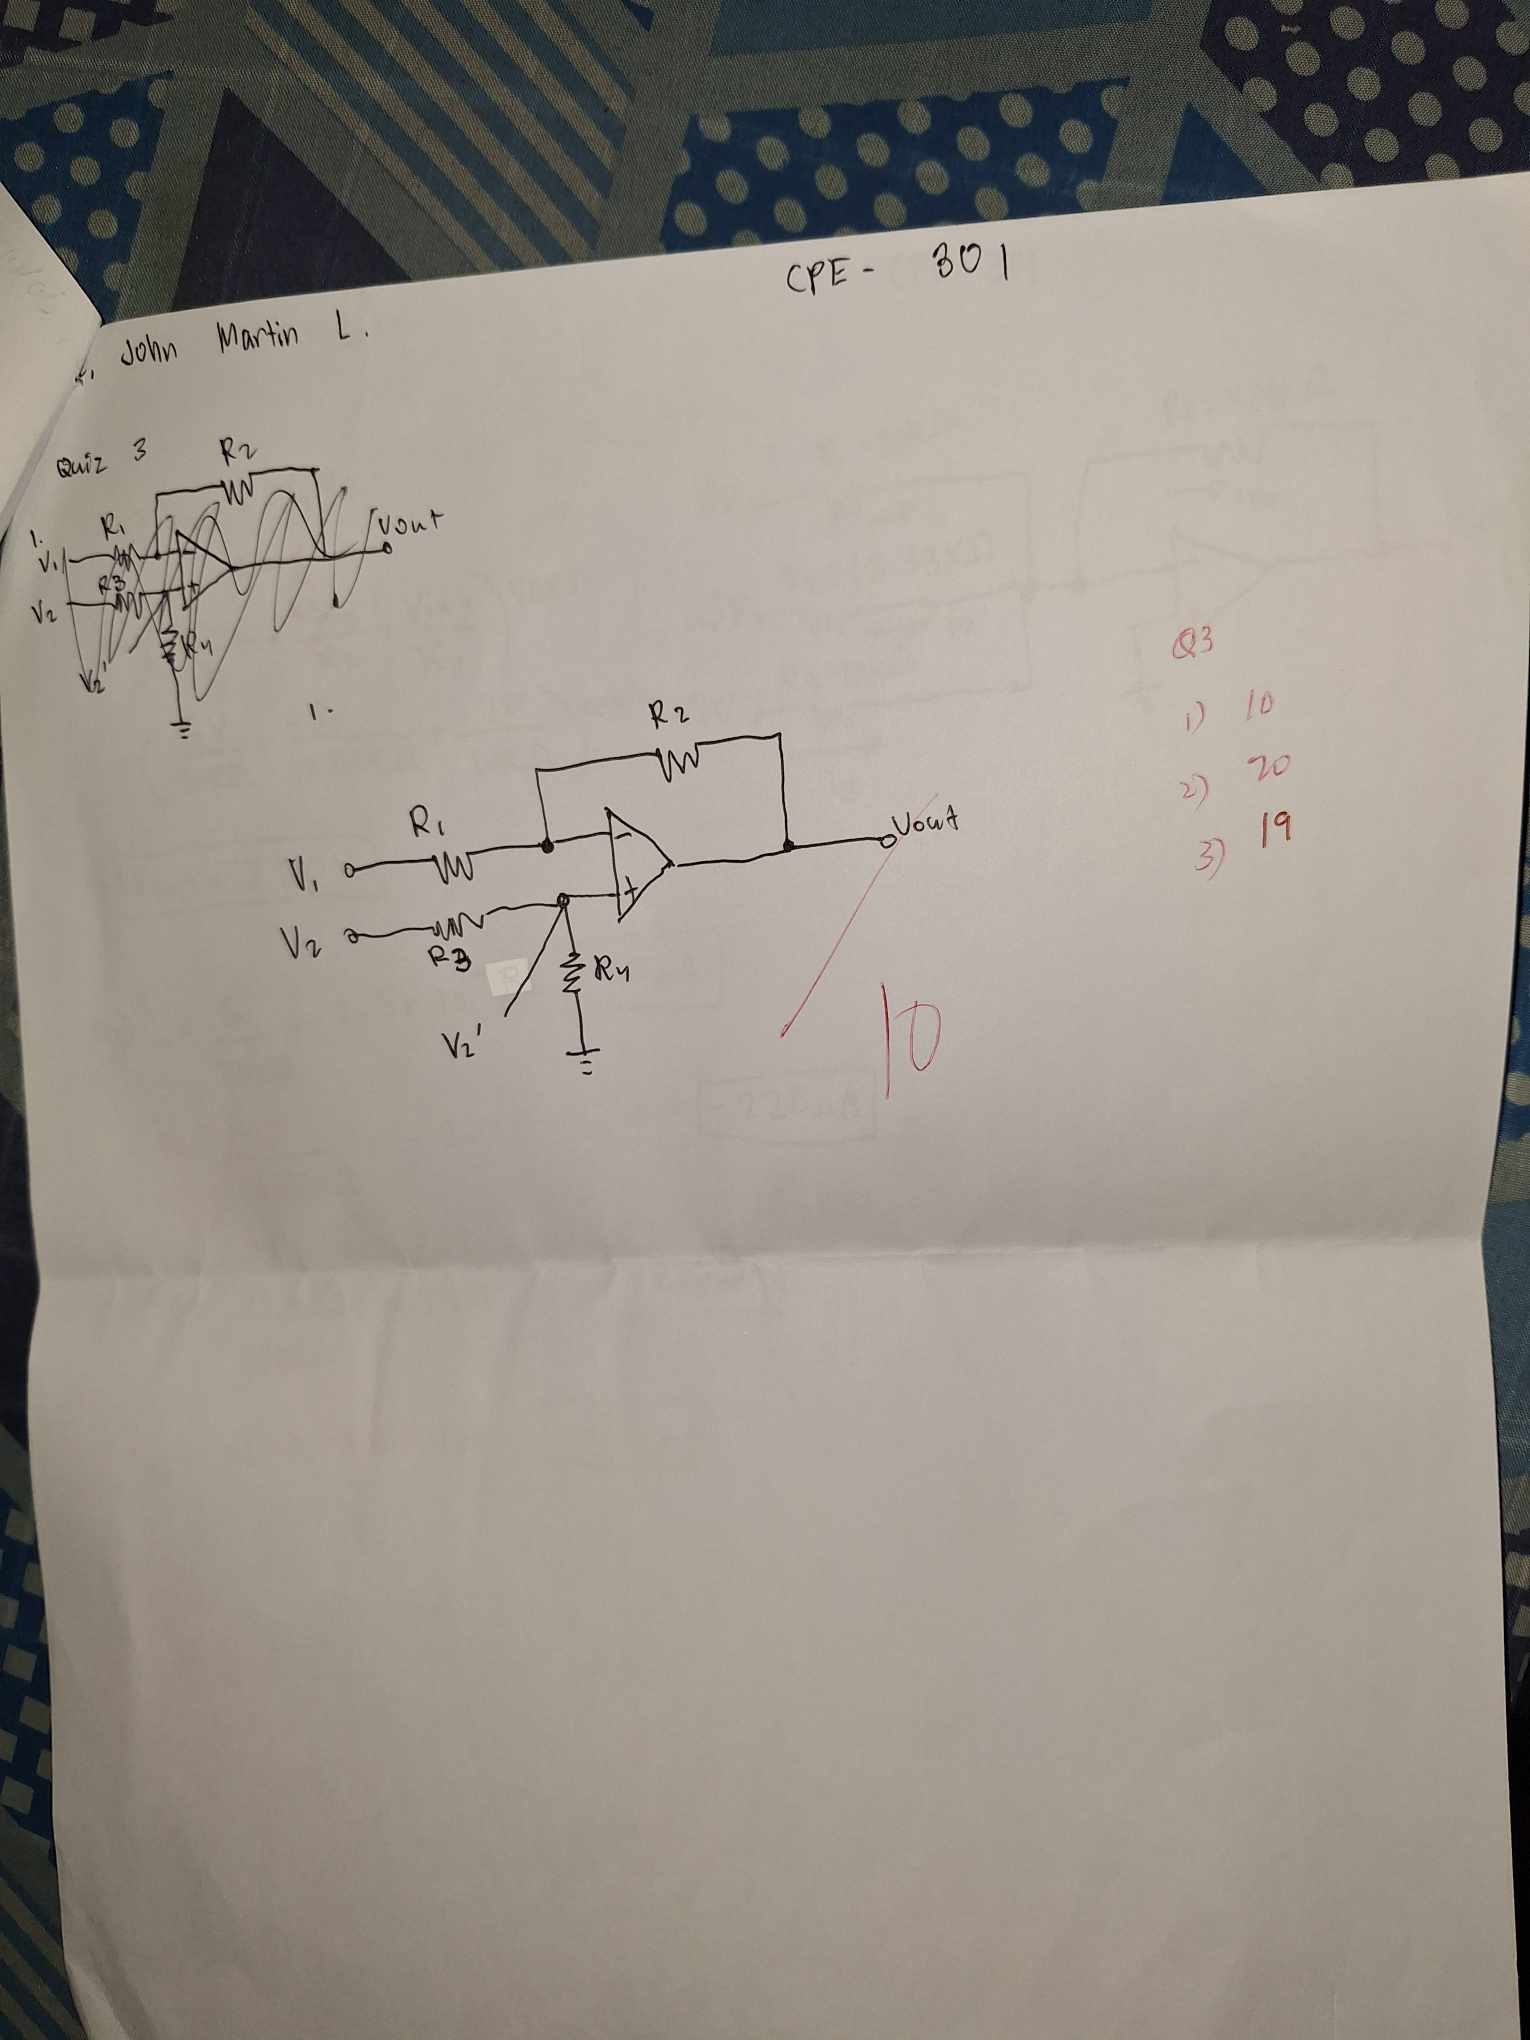 CPE - 301
John Martin L.
Quiz 3
R2
1.
R1
Vout
V1
R3
V2
R4
V2'
1.
R2
R1
Vout
V1
V2
R3
R4
V2'
10
Q3
1) 10
2) 20
3) 19